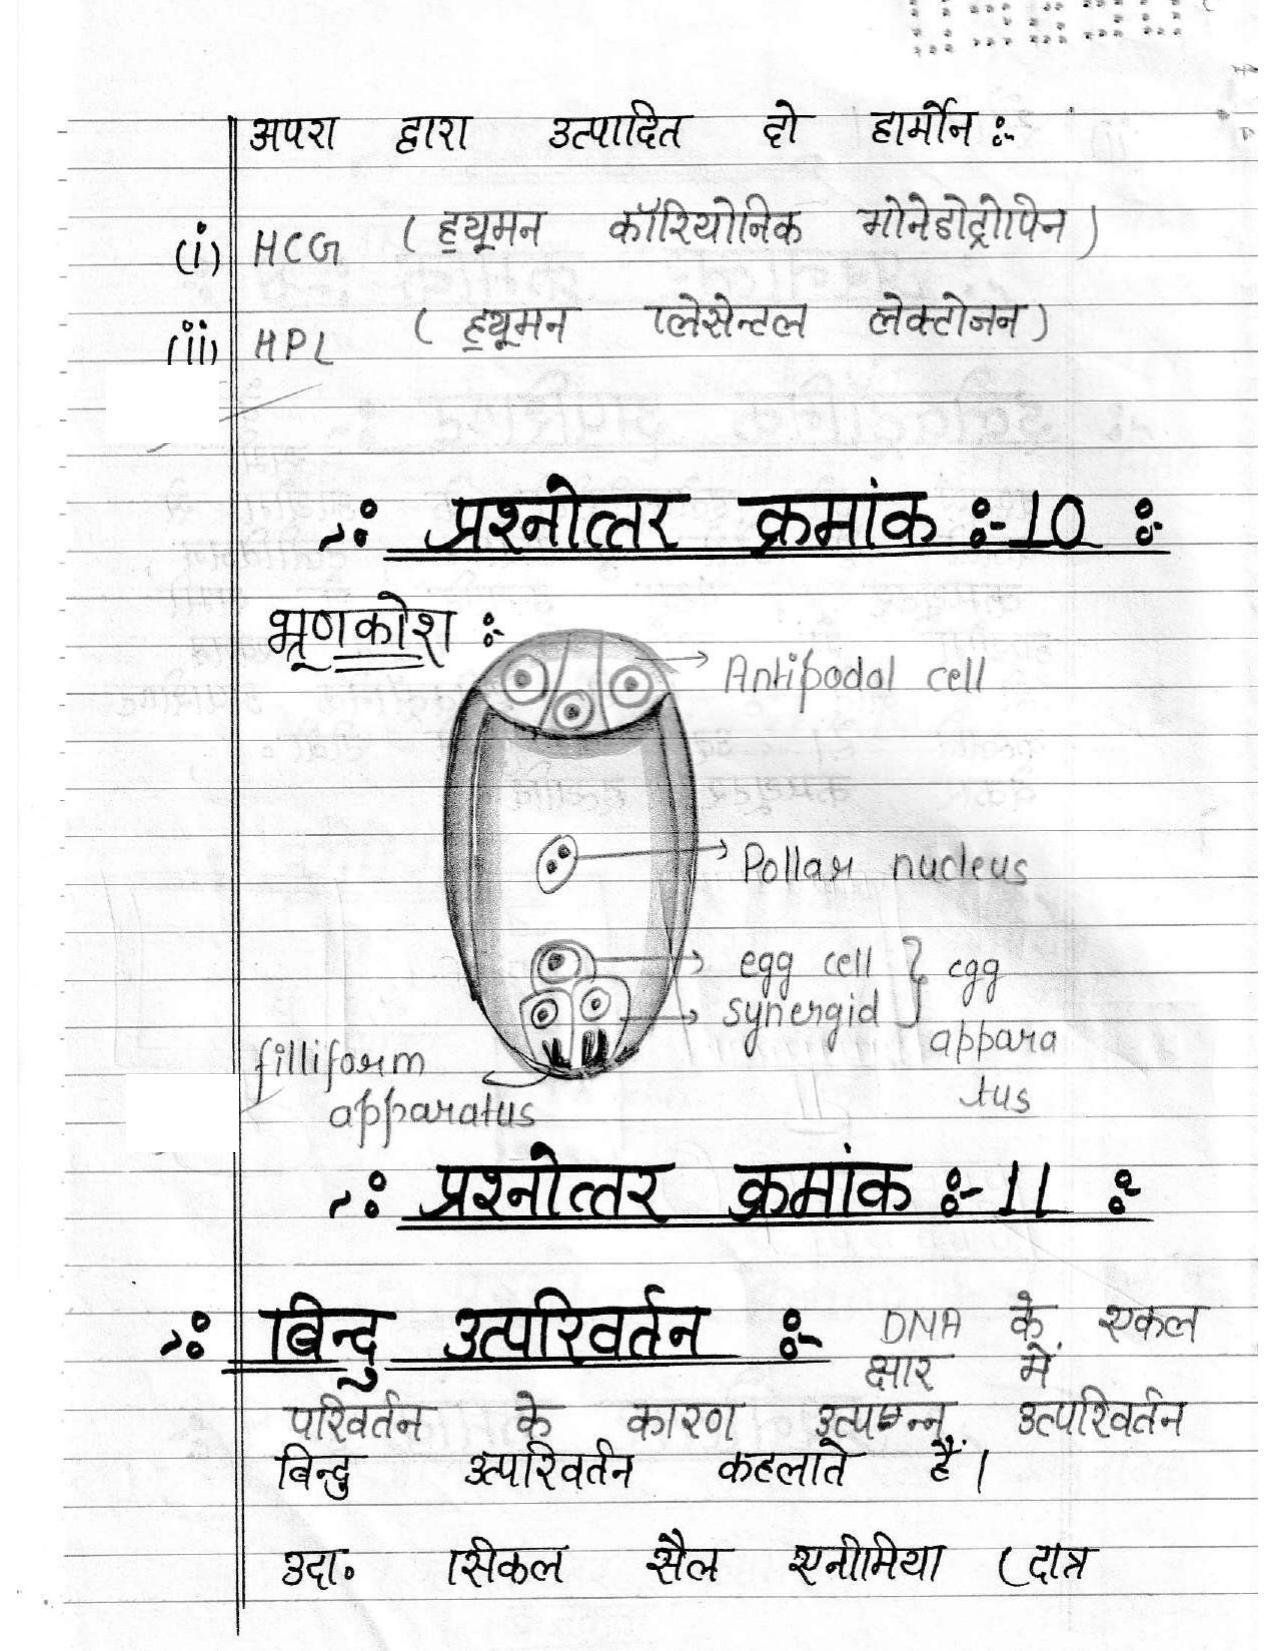 अपरा द्वारा उत्पादित दो हार्मोन :-
(i) HCG ( ह्यूमन कॉरियोनिक गोनेडोट्रोपिन )
(ii) HPL ( ह्यूमन प्लेसेन्टल लेक्टोजन )
-: प्रश्नोत्तर क्रमांक :-10 :-
भ्रूणकोश :-
Antipodal cell
Pollar nucleus
egg cell } egg
synergid
appara
filliform
tus
apparatus
-: प्रश्नोत्तर क्रमांक :-11 :-
-: बिन्दु उत्परिवर्तन :- DNA के एकल
क्षार में
परिवर्तन के कारण उत्पन्न उत्परिवर्तन
बिन्दु उत्परिवर्तन कहलाते हैं।
उदा. सिकल सैल एनीमिया (दात्र